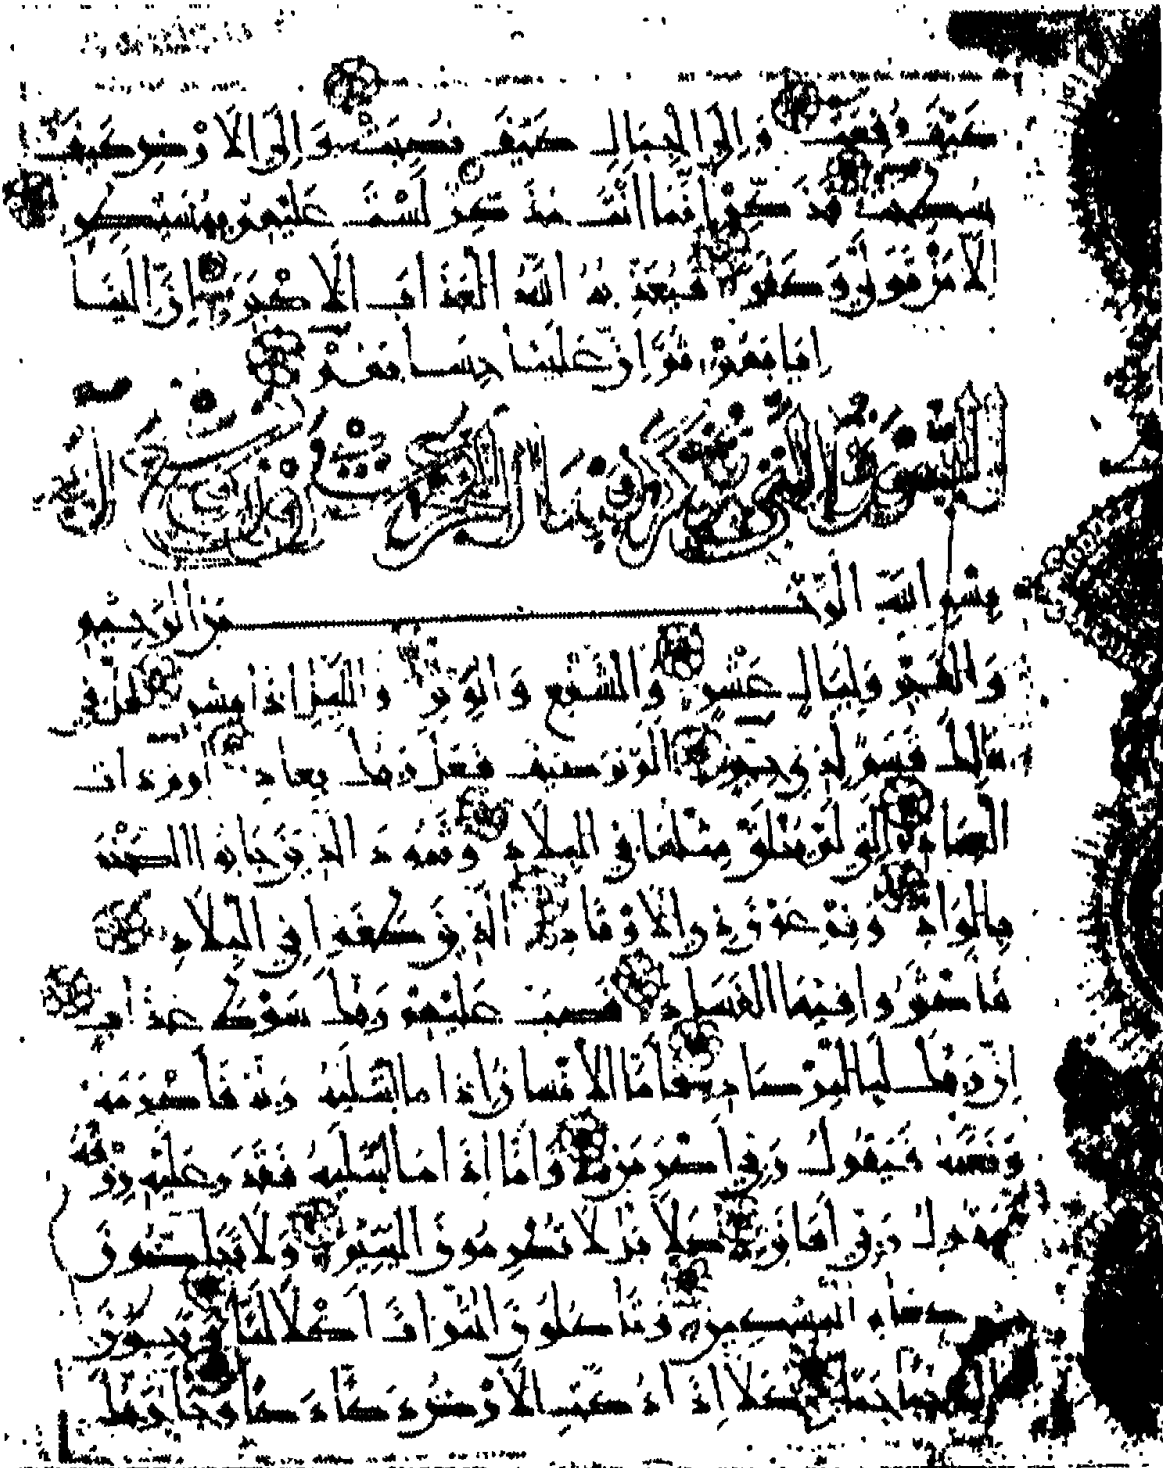 كَيْفَ رُفِعَتْ وَإِلَى الْجِبَالِ كَيْفَ نُصِبَتْ وَإِلَى الْأَرْضِ كَيْفَ
سُطِحَتْ فَذَكِّرْ إِنَّمَا أَنْتَ مُذَكِّرٌ لَسْتَ عَلَيْهِمْ بِمُصَيْطِرٍ
إِلَّا مَنْ تَوَلَّى وَكَفَرَ فَيُعَذِّبُهُ اللَّهُ الْعَذَابَ الْأَكْبَرَ إِنَّ إِلَيْنَا
إِيَابَهُمْ ثُمَّ إِنَّ عَلَيْنَا حِسَابَهُمْ
بِسْمِ اللَّهِ الرَّحْ
مَنِ الرَّحِيمِ
وَالْفَجْرِ وَلَيَالٍ عَشْرٍ وَالشَّفْعِ وَالْوَتْرِ وَاللَّيْلِ إِذَا يَسْرِ هَلْ فِي
ذَلِكَ قَسَمٌ لِذِي حِجْرٍ أَلَمْ تَرَ كَيْفَ فَعَلَ رَبُّكَ بِعَادٍ إِرَمَ ذَاتِ
الْعِمَادِ الَّتِي لَمْ يُخْلَقْ مِثْلُهَا فِي الْبِلَادِ وَثَمُودَ الَّذِينَ جَابُوا الصَّخْرَ
بِالْوَادِ وَفِرْعَوْنَ ذِي الْأَوْتَادِ الَّذِينَ طَغَوْا فِي الْبِلَادِ
فَأَكْثَرُوا فِيهَا الْفَسَادَ فَصَبَّ عَلَيْهِمْ رَبُّكَ سَوْطَ عَذَابٍ
إِنَّ رَبَّكَ لَبِالْمِرْصَادِ فَأَمَّا الْإِنْسَانُ إِذَا مَا ابْتَلَاهُ رَبُّهُ فَأَكْرَمَهُ
وَنَعَّمَهُ فَيَقُولُ رَبِّي أَكْرَمَنِ وَأَمَّا إِذَا مَا ابْتَلَاهُ فَقَدَرَ عَلَيْهِ رِزْقَهُ
فَيَقُولُ رَبِّي أَهَانَنِ كَلَّا بَلْ لَا تُكْرِمُونَ الْيَتِيمَ وَلَا تَحَاضُّونَ
عَلَى طَعَامِ الْمِسْكِينِ وَتَأْكُلُونَ التُّرَاثَ أَكْلًا لَمًّا وَتُحِبُّونَ
الْمَالَ حُبًّا جَمًّا كَلَّا إِذَا دُكَّتِ الْأَرْضُ دَكًّا دَكًّا وَجَاءَ رَبُّكَ